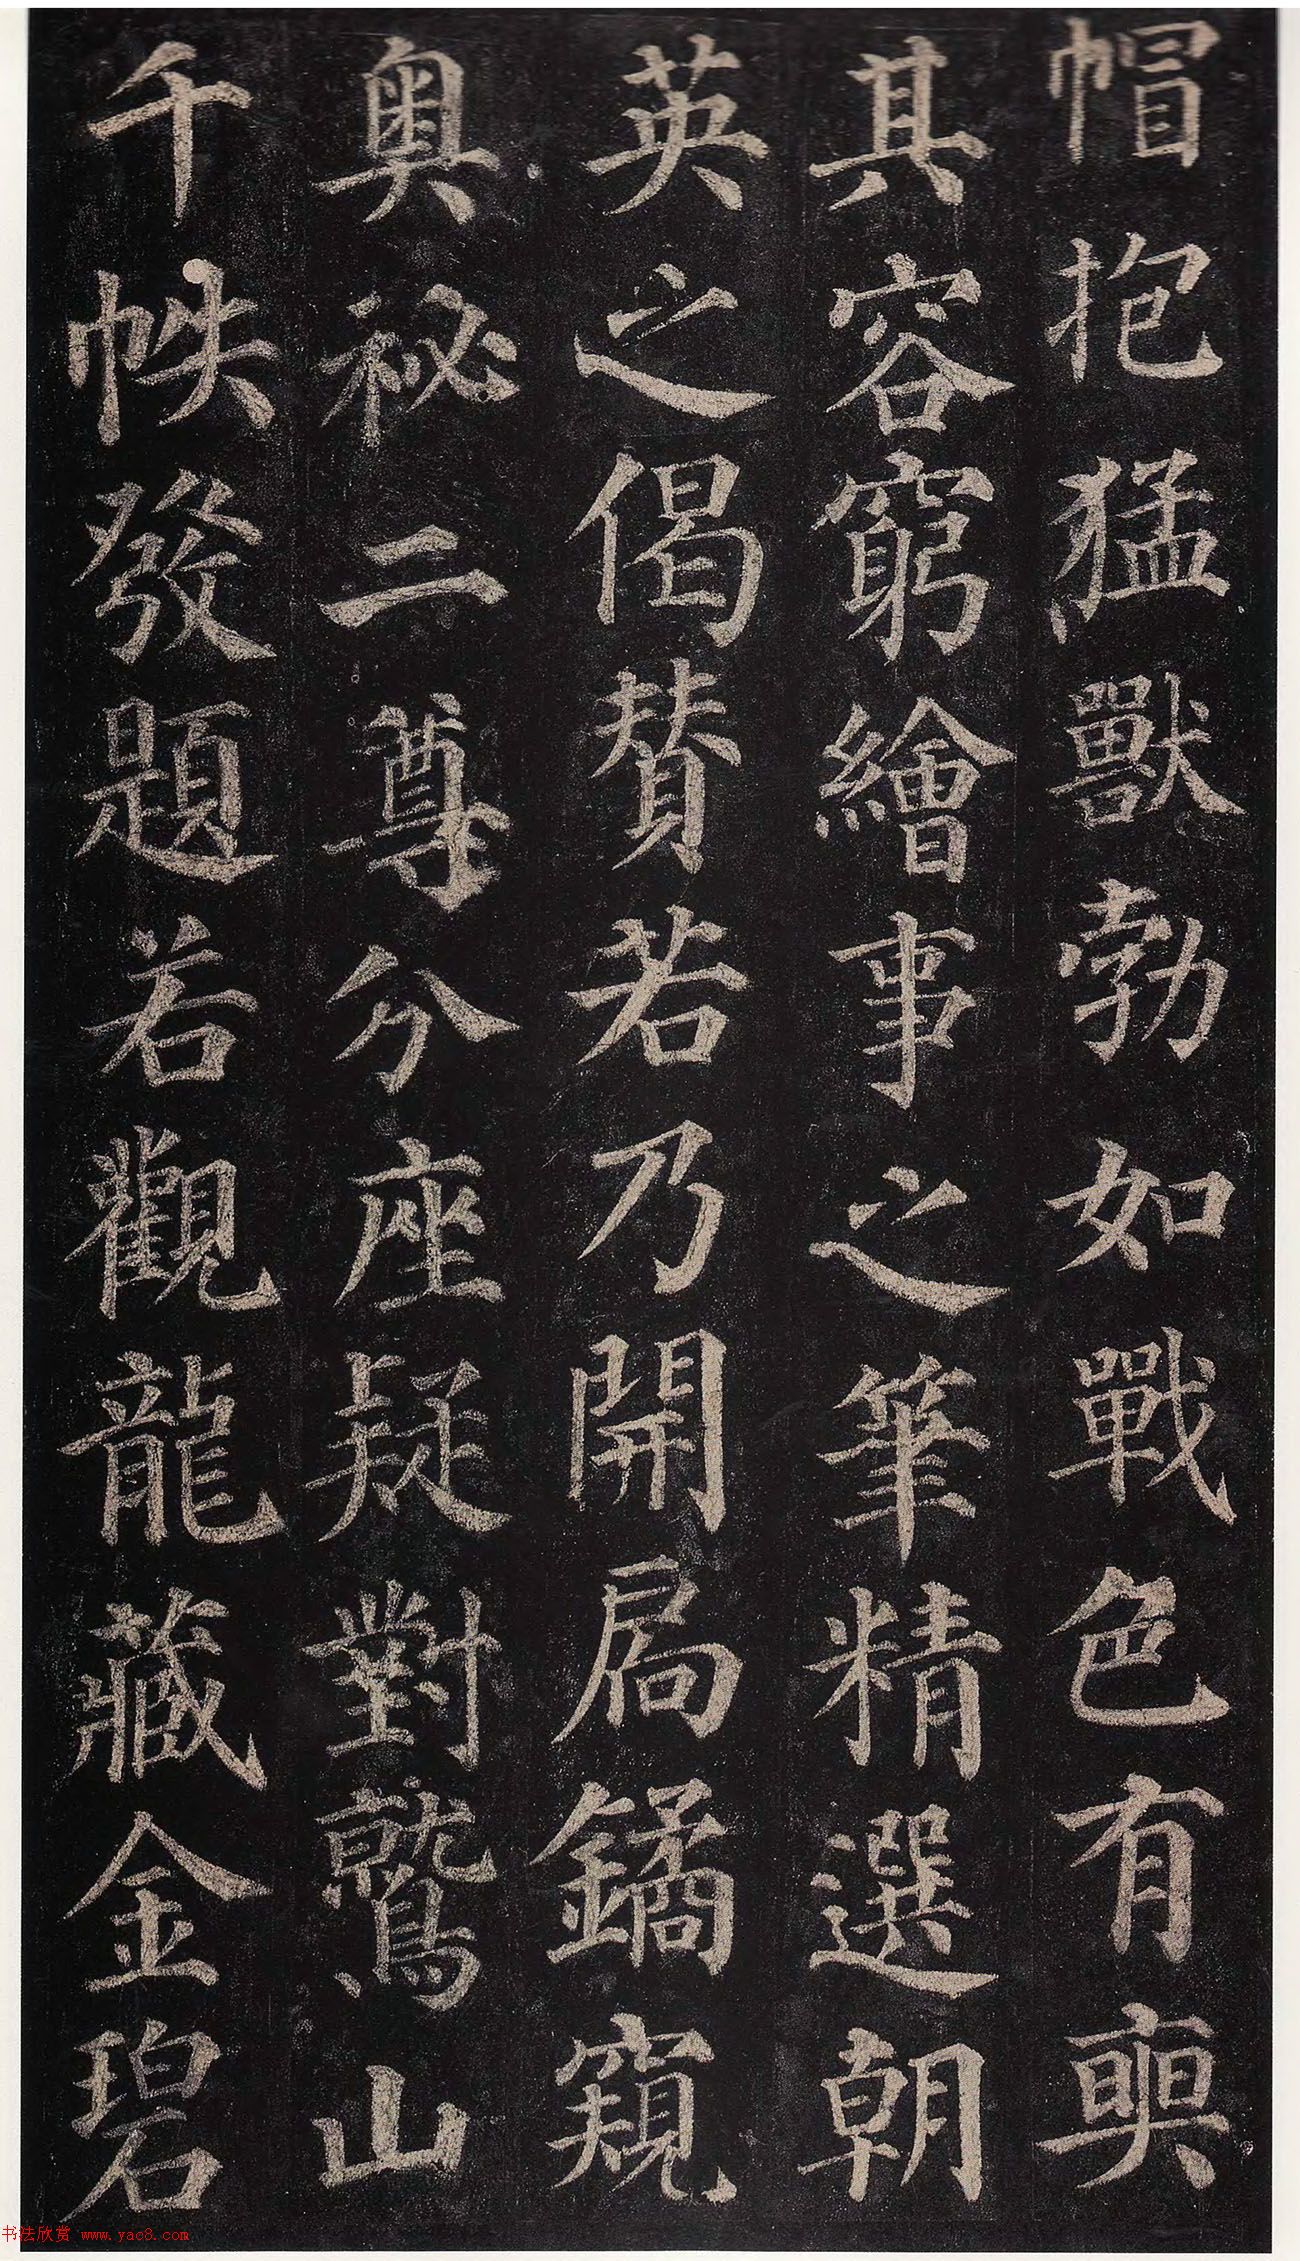 帽抱猛獸勃如戰色有奭
其容窮繪事之筆精選朝
英之偈贊若乃開扃鐍窺
奧祕二尊分座疑對鷲山
千帙發題若觀龍藏金碧
书法欣赏 www.yac8.com